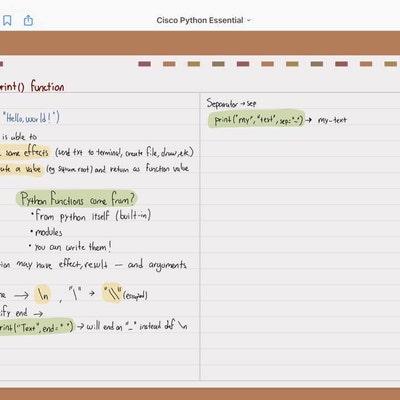 Cisco Python Essential
rint() function
"Hello, world!")
is able to
some effects (send txt to terminal, create file, draw, etc.)
ute a value (eg square root) and return as function value
Python functions come from?
• From python itself (built-in)
• modules
• You can write them!
tion may have effect, result — and arguments
→ \n , "\" → "\\" (escaped)
ify end →
print("Text", end=" ") → will end on "_" instead def \n
Separator → sep
print("my", "text", sep="-") → my-text